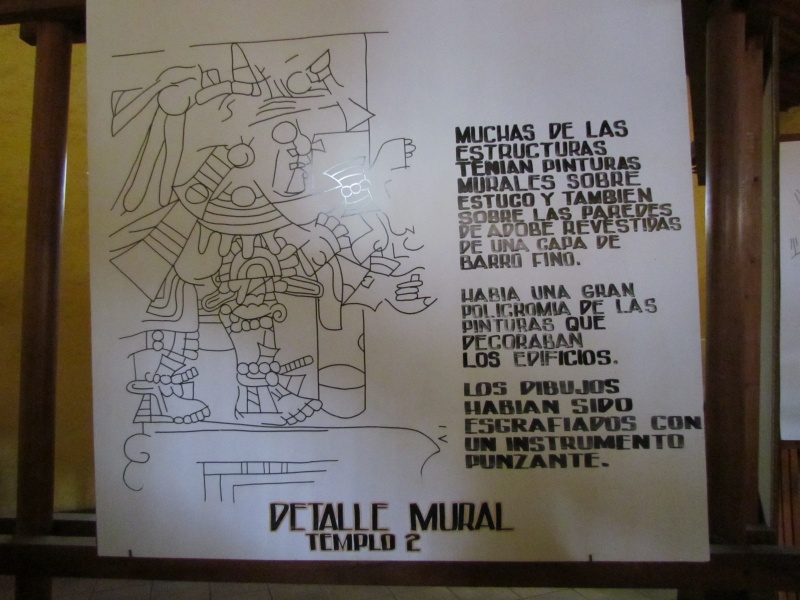 MUCHAS DE LAS
ESTRUCTURAS
TENIAN PINTURAS
MURALES SOBRE
ESTUCO Y TAMBIEN
SOBRE LAS PAREDES
DE ADOBE REVESTIDAS
DE UNA CAPA DE
BARRO FINO.
HABIA UNA GRAN
POLICROMIA DE LAS
PINTURAS QUE
DECORABAN
LOS EDIFICIOS.
LOS DIBUJOS
HABIAN SIDO
ESGRAFIADOS CON
UN INSTRUMENTO
PUNZANTE.
DETALLE MURAL
TEMPLO 2